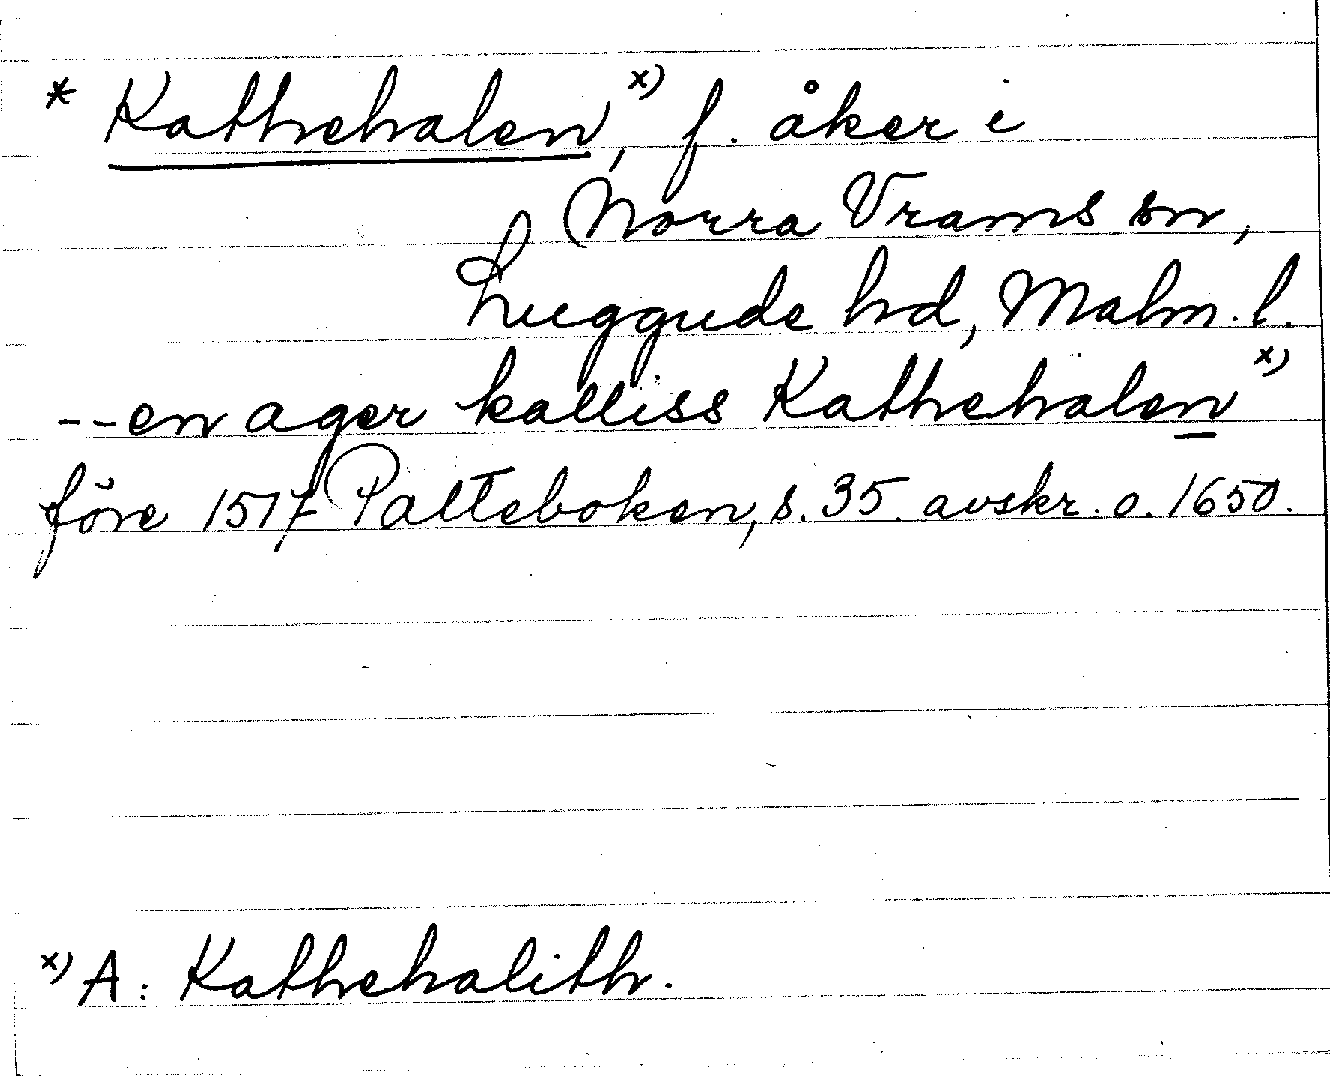 * Kathehalen,x) f. åker i
Norra Vrams sn,
Luggude hd, Malm. l.
--en ager kalliss Kathehalenx)
före 1517 Palteboken, s. 35. avskr. o. 1650.
x) A: Kathehalith.